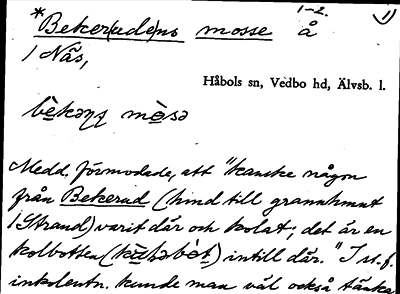 1-2. 1)
*Beker(ude)ns mosse å
/ Näs,
Håbols sn, Vedbo hd, Älvsb. l.
bèkəɳʂ mòsə
Medd. förmodade, att "kanske någon
från Bekerud (hind till grannhmnt
/ Strand) varit där och kolat; det är en
kolbotten intill där." I st. f.
inkolentn. kunde man väl också tänka